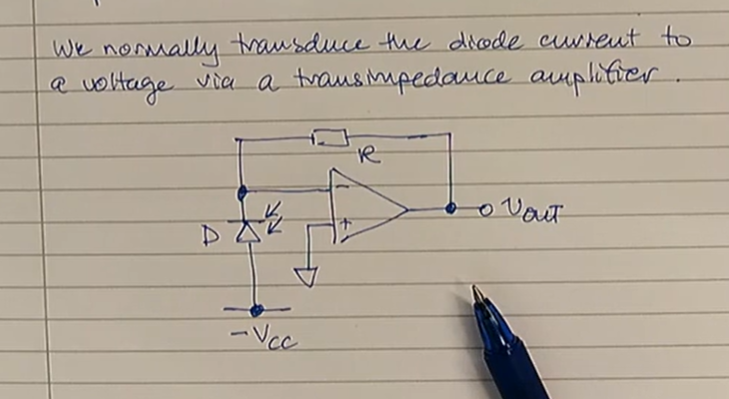 We normally transduce the diode current to
a voltage via a transimpedance amplifier.
R
-
+
D
VOUT
-VCC